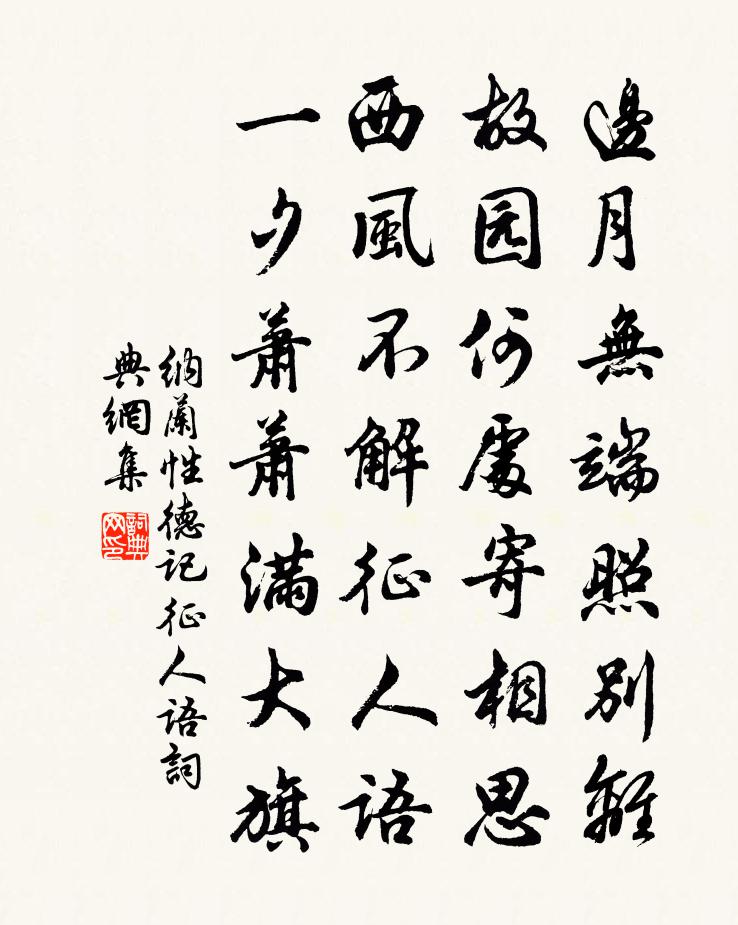 邊月無端照別離
故园何處寄相思
西風不解征人語
一夕蕭蕭满大旗
纳蘭性德记征人语詞
典網集
詞典
网印